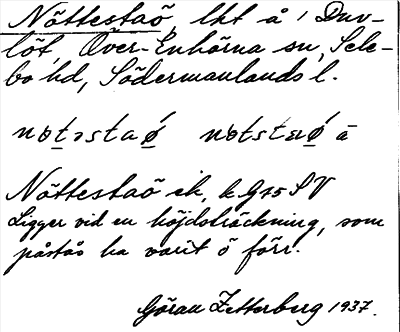 Nöttestaö, lht å 1 Duv-
löt, Över-Enhörna sn, Sele-
bo hd, Södermanlands l.
Nöttestaö ek, k G 15 S V
Ligger vid en höjdsträckning, som
påstås ha varit ö förr.
Göran Zetterberg 1937.